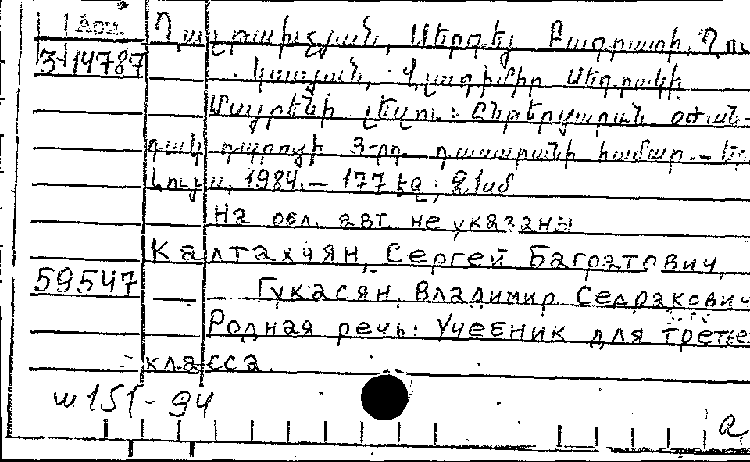 Арм.
Ղալթախչյան, Սերգեյ Բագրատի, Ղու-
3-14787
կասյան, Վլադիմիր Սեդրակի
Մայրենի լեզու: Ընթերցարան օժան-
դակ դպրոցի 3-րդ դասարանի համար. – Եր.
Լույս, 1984. – 177 էջ;
На обл. авт. не указаны
Калтахчян, Сергей Багратович,
59547
Гукасян, Владимир Седракович
Родная речь: Учебник для третье
класса.
ш 151-94
а